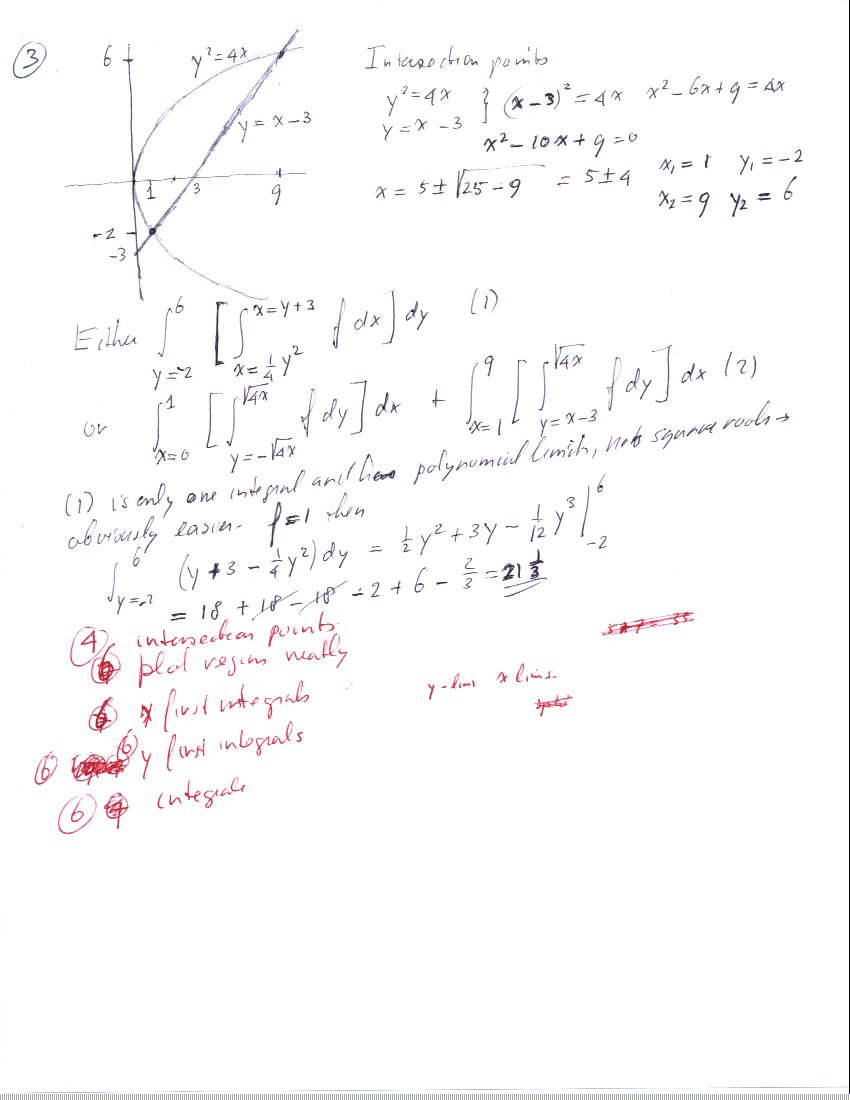 ③
6
y² = 4x
y = x - 3
1 3 9
-2
-3
Intersection points
y² = 4x
y = x - 3 } (x - 3)² = 4x x² - 6x + 9 = 4x
x² - 10x + 9 = 0
x = 5 ± √25 - 9 = 5 ± 4 x₁ = 1 y₁ = -2
x₂ = 9 y₂ = 6
Either ∫_{y=-2}^{6} [∫_{x=¼y²}^{x=y+3} f dx] dy (1)
or ∫_{x=0}^{1} [∫_{y=-√4x}^{√4x} f dy] dx + ∫_{x=1}^{9} [∫_{y=x-3}^{√4x} f dy] dx (2)
(1) is only one integral and has polynomial limits, not square roots →
obviously easier. f = 1 then
∫_{y=-2}^{6} (y + 3 - ¼y²) dy = ½y² + 3y - 1/12 y³ |_{-2}^{6}
= 18 + 18 - 18 - 2 + 6 - 2/3 = 21 1/3
④ intersection points
⑥ plot region neatly
⑥ x first integrals
y-lims x lims
⑥ ⑥ y first integrals
⑥ integrals